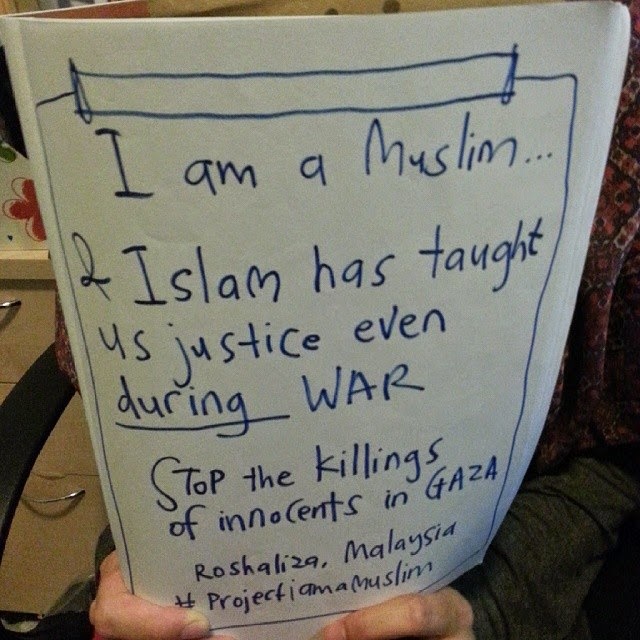 I am a Muslim...
& Islam has taught
us justice even
during WAR
STOP the killings
of innocents in GAZA
Roshaliza, Malaysia
# Projectiamamuslim